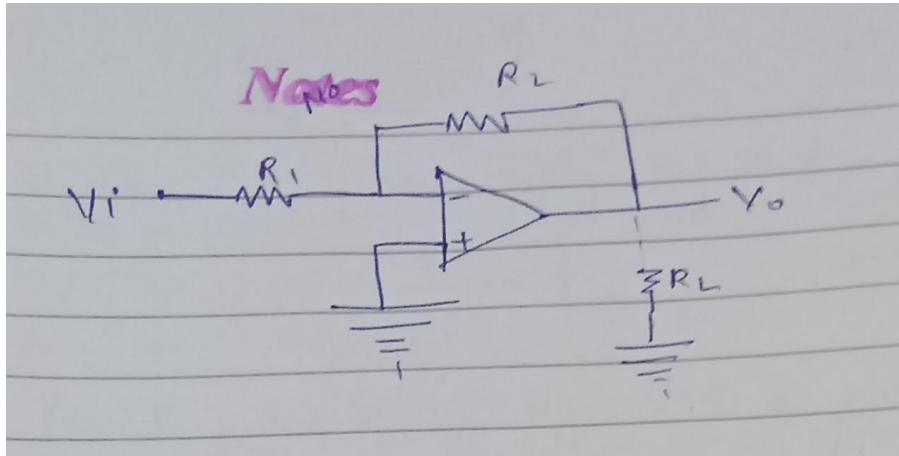 Notes
R2
R1
Vi
-
Vo
+
RL